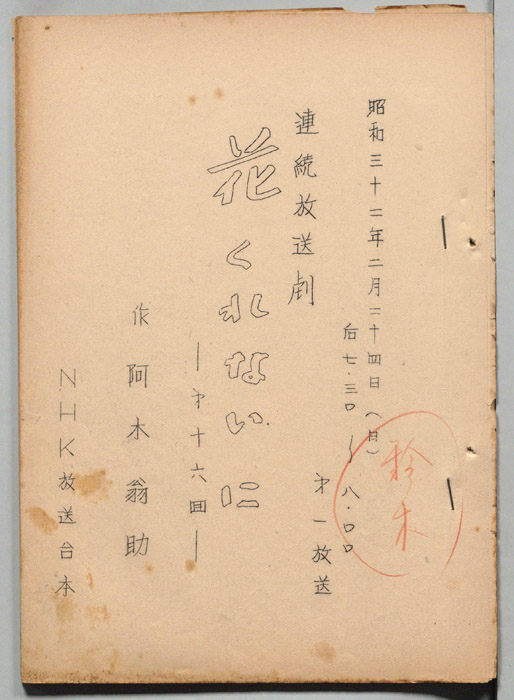 昭和三十二年二月二十四日(日)
后七.三〇~八.〇〇
第一放送
連続放送劇
花くれないに
―第十六回―
作 阿木翁助
NHK放送台本
鈴木